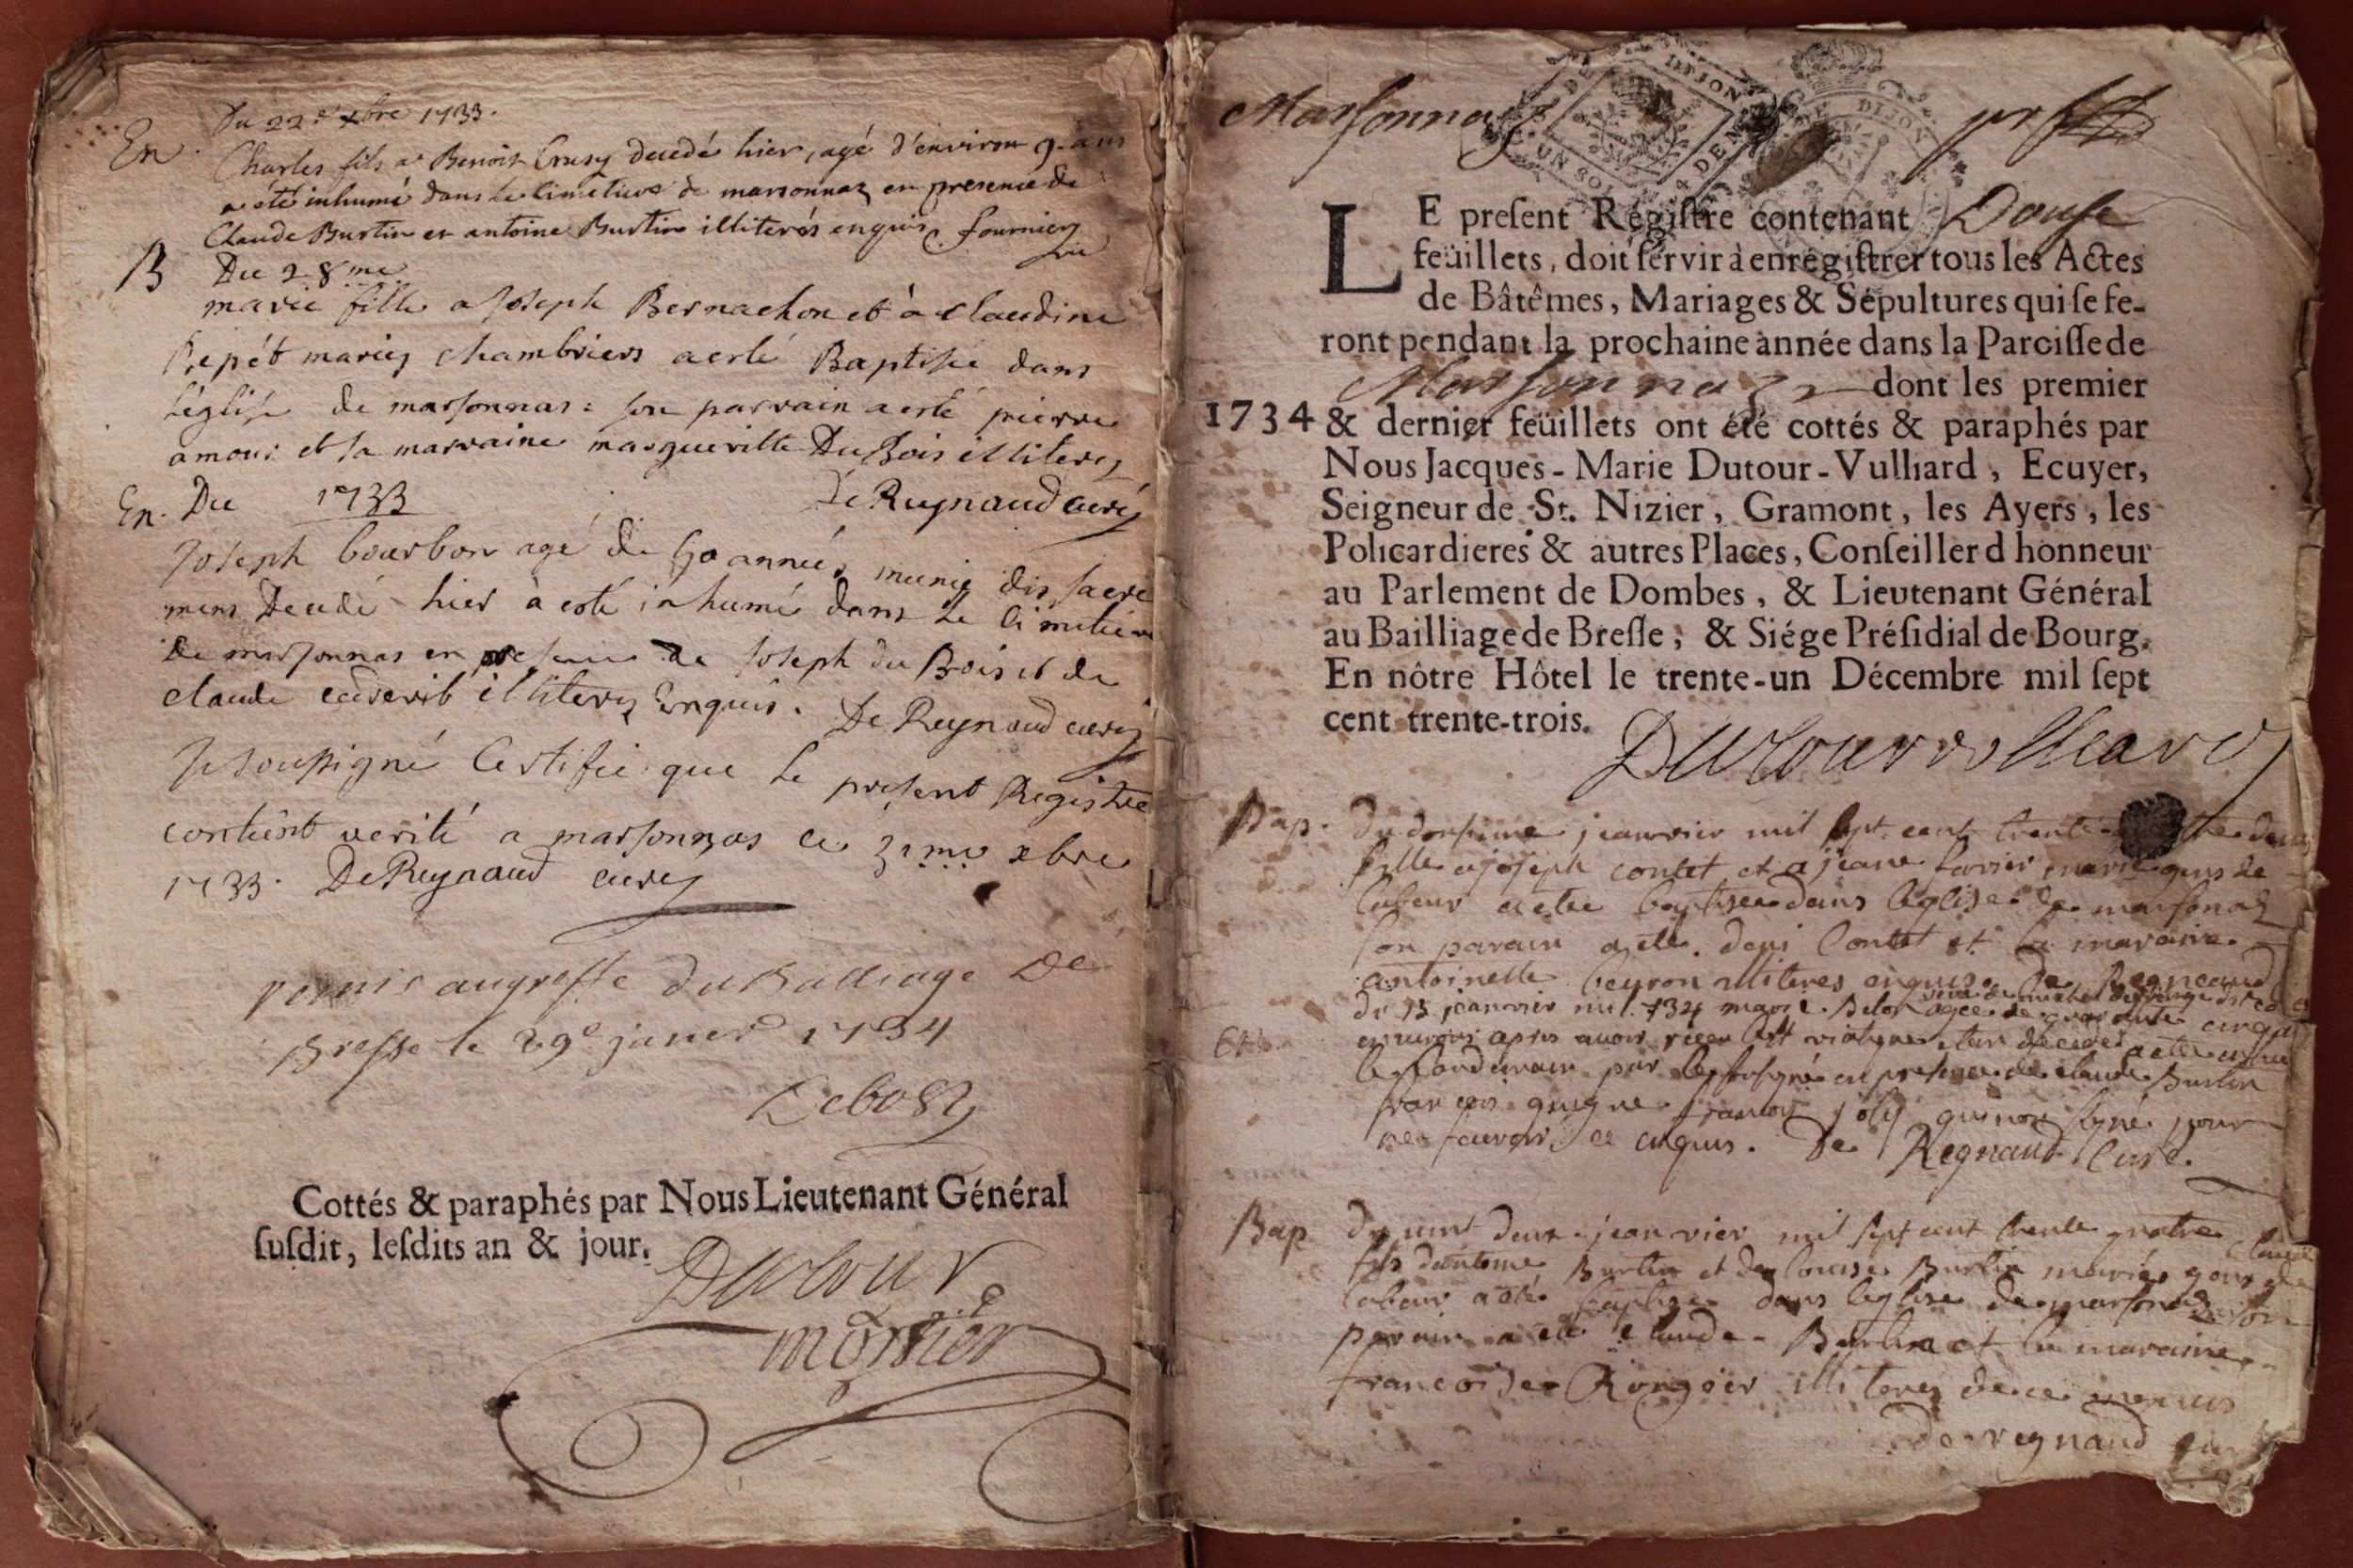 Du 22e xbre 1733.
En. Charles fils a Benoit Crusy decedé hier, agé d'environ 9 ans
a été inhumé dans le cimetiere de marsonnaz en presence de
Claude Burtin et antoine Burtin illiterés enquis. fournier
B Du 28me
marie fille a Joseph Bernachon et à claudine
mariez chambriers a esté Baptisée dans
l'églisse de marsonnas : son parrain a esté pierre
amour et sa marraine margueritte DuBois illiterez
En. Du 1733 De Reynaud curéz
Joseph bourbon agé de années munis dis sacre
mens Decedé hier à esté inhumé dans le cimetiere
de marsonnas en presence de Joseph du Bois et de
claude illiterez Enquis. De Reynaud curéz
Je soussigné Certifie que le present Registre
contient verité a marsonnas ce 31me xbre
1733. De Reynaud curéz
remis au greffe du Balliage De
Bresse le 29e janier 1734
Cottés & paraphés par Nous Lieutenant Général
ſuſdit, leſdits an & jour.
Dutour
Marsonnaz
UN SOL 4 DEN DIJON
DIJON
LE preſent Régiſtre contenant Douse
feüillets, doit ſervir à enrégiſtrer tous les Actes
de Bâtêmes, Mariages & Sépultures qui ſe fe-
ront pendant la prochaine année dans la Paroiſſe de
Marsonnaz dont les premier
1734 & dernier feüillets ont été cottés & paraphés par
Nous Jacques-Marie Dutour-Vulliard, Ecuyer,
Seigneur de St. Nizier, Gramont, les Ayers, les
Policardieres & autres Places, Conſeiller d honneur
au Parlement de Dombes, & Lieutenant Général
au Bailliage de Breſſe, & Siége Préſidial de Bourg.
En nôtre Hôtel le trente-un Décembre mil ſept
cent trente-trois.
Dutour vulliard
Bap. du dousieme jeanvier mil sept cent trente
fille a joseph contet et a jeane mariés gens de
labeur a etée baptisee dans leglise de marsonaz
son parain a ete. deni Contet et la maraine
antoinelle illiteres enquis. De Regneaud
du 13 jeanvier mil. 734 marie agee de
environ apres avoir receu
par le soussigné en presence de claude Burtin
francois joly qui non signé pour
ne scavoir de enquis. De Regnaud Curé.
Bap du vint deux jeanvier mil sept cent trente quatre claude
fils dantoine Burtin et de louise Burtin mariés gens de
labeur a été baptizé dans leglise de marsonaz son
parain a ete claude Burtin et la maraine
francoise illiterez de ce enquis
de regnaud